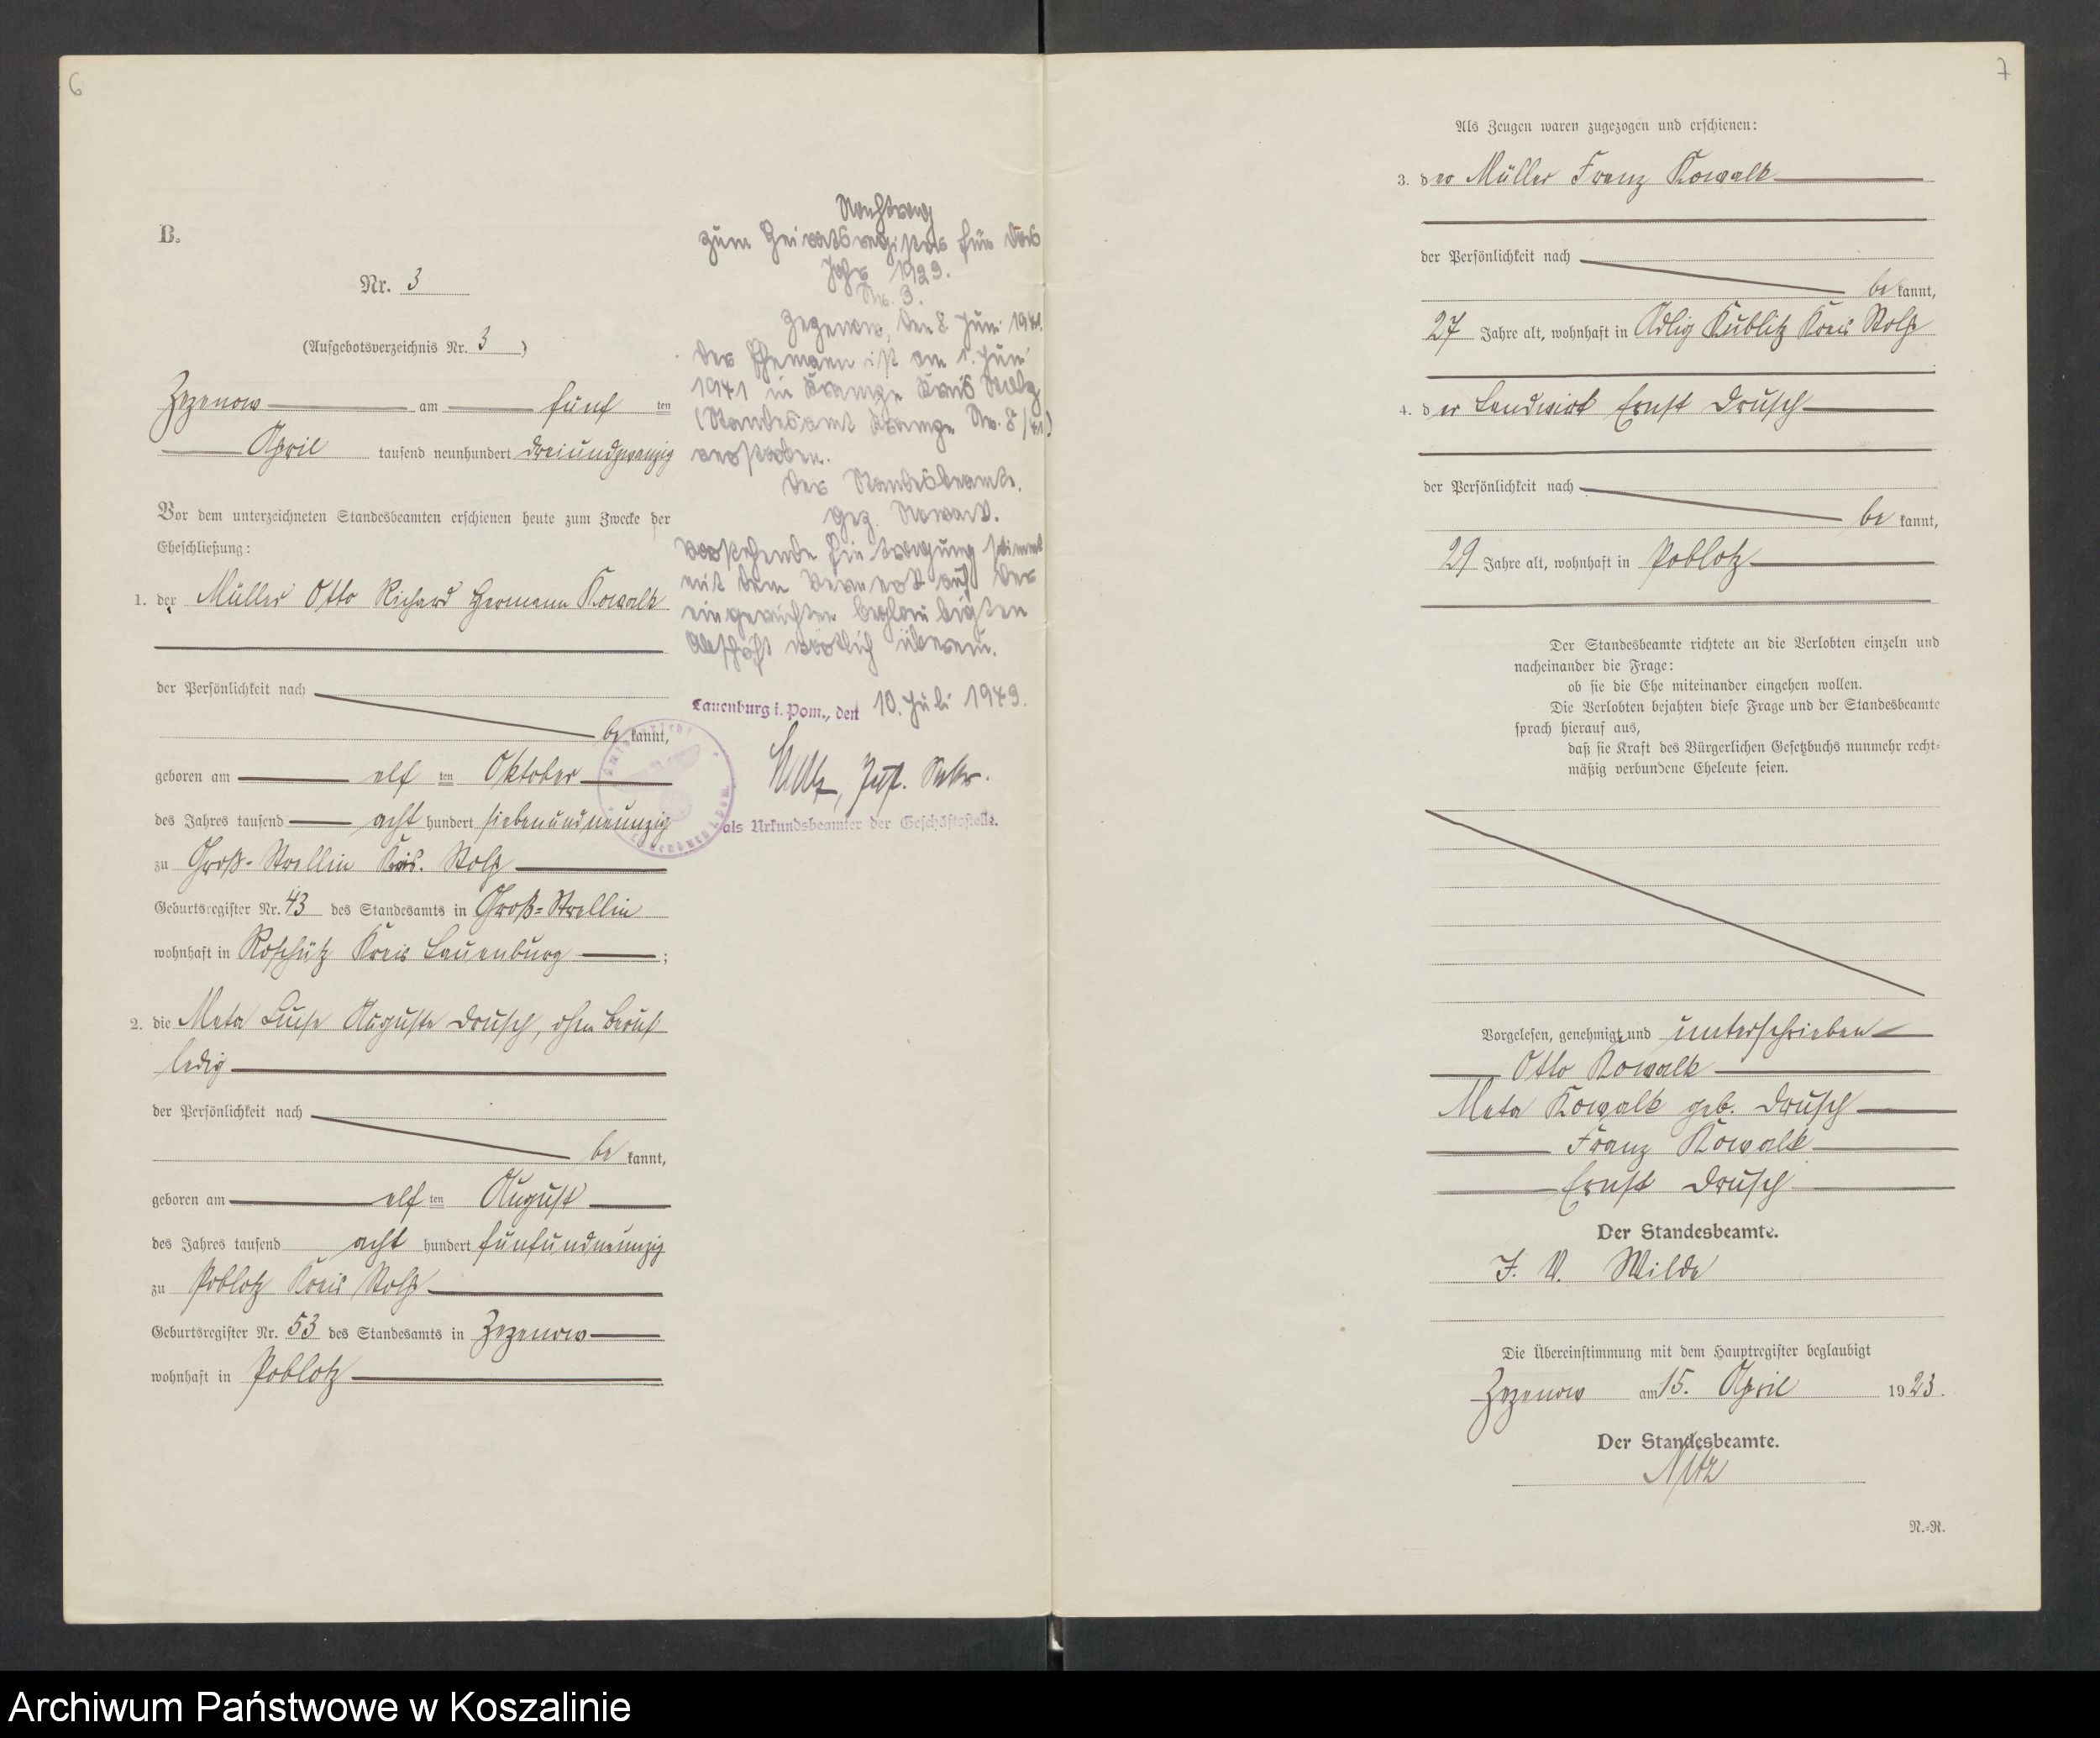 6
B.
Nr. 3
(Aufgebotsverzeichnis Nr. 3)
Zezenow am fünf ten
April tausend neunhundert dreiundzwanzig
Vor dem unterzeichneten Standesbeamten erschienen heute zum Zwecke der
Eheschließung:
1. der Müller Otto Richard Hermann Kowalk
der Persönlichkeit nach
be kannt,
geboren am elf ten Oktober
des Jahres tausend acht hundert siebenundneunzig
zu Groß-Strellin Kreis Stolp
Geburtsregister Nr. 43 des Standesamts in Groß-Strellin
wohnhaft in Roschütz Kreis Lauenburg ;
2. die Meta Luise Auguste Drusch, ohne Beruf
ledig
der Persönlichkeit nach
be kannt,
geboren am elf ten August
des Jahres tausend acht hundert fünfundneunzig
zu Poblotz Kreis Stolp
Geburtsregister Nr. 53 des Standesamts in Zezenow
wohnhaft in Poblotz
Nachtrag
zum Heiratsregister für das
Jahr 1923.
Nr. 3.
Zezenow, den 8. Juni 1941.
Der Ehemann ist am 1. Juni
1941 in Krampe Kreis Stolp
(Standesamt Krampe Nr. 8/41)
verstorben.
Der Standesbeamte.
gez.
Vorstehende Eintragung stimmt
mit dem Vermerk auf der
eingereichten beglaubigten
Abschrift wörtlich überein.
Lauenburg i. Pom., den 10. Juli 1943.
Just. Sekr.
als Urkundsbeamter der Geschäftsstelle.
7
Als Zeugen waren zugezogen und erschienen:
3. der Müller Franz Kowalk
der Persönlichkeit nach
be kannt,
27 Jahre alt, wohnhaft in Adlig Kublitz Kreis Stolp
4. der Landwirt Ernst Drusch
der Persönlichkeit nach
be kannt,
29 Jahre alt, wohnhaft in Poblotz
Der Standesbeamte richtete an die Verlobten einzeln und
nacheinander die Frage:
ob sie die Ehe miteinander eingehen wollen.
Die Verlobten bejahten diese Frage und der Standesbeamte
sprach hierauf aus,
daß sie Kraft des Bürgerlichen Gesetzbuchs nunmehr recht-
mäßig verbundene Eheleute seien.
Vorgelesen, genehmigt und unterschrieben
Otto Kowalk
Meta Kowalk geb. Drusch
Franz Kowalk
Ernst Drusch
Der Standesbeamte.
J. V. Wilde
Die Übereinstimmung mit dem Hauptregister beglaubigt
Zezenow am 15. April 1923.
Der Standesbeamte.
Nitz
N.-R.
Archiwum Państwowe w Koszalinie